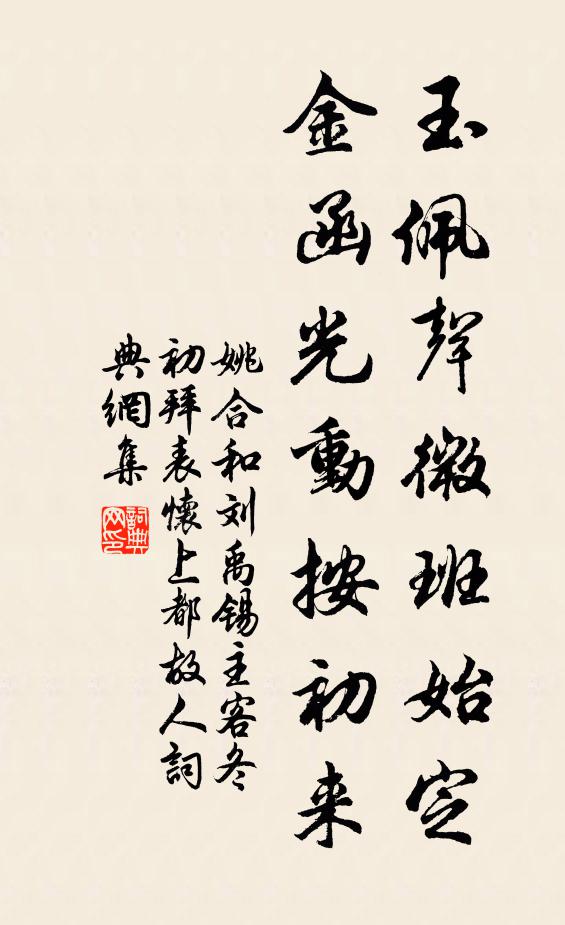 玉佩聲微班始定
金函光動按初来
姚合和刘禹锡主客冬
初拜表懷上都故人詞
典網集
詞典网印